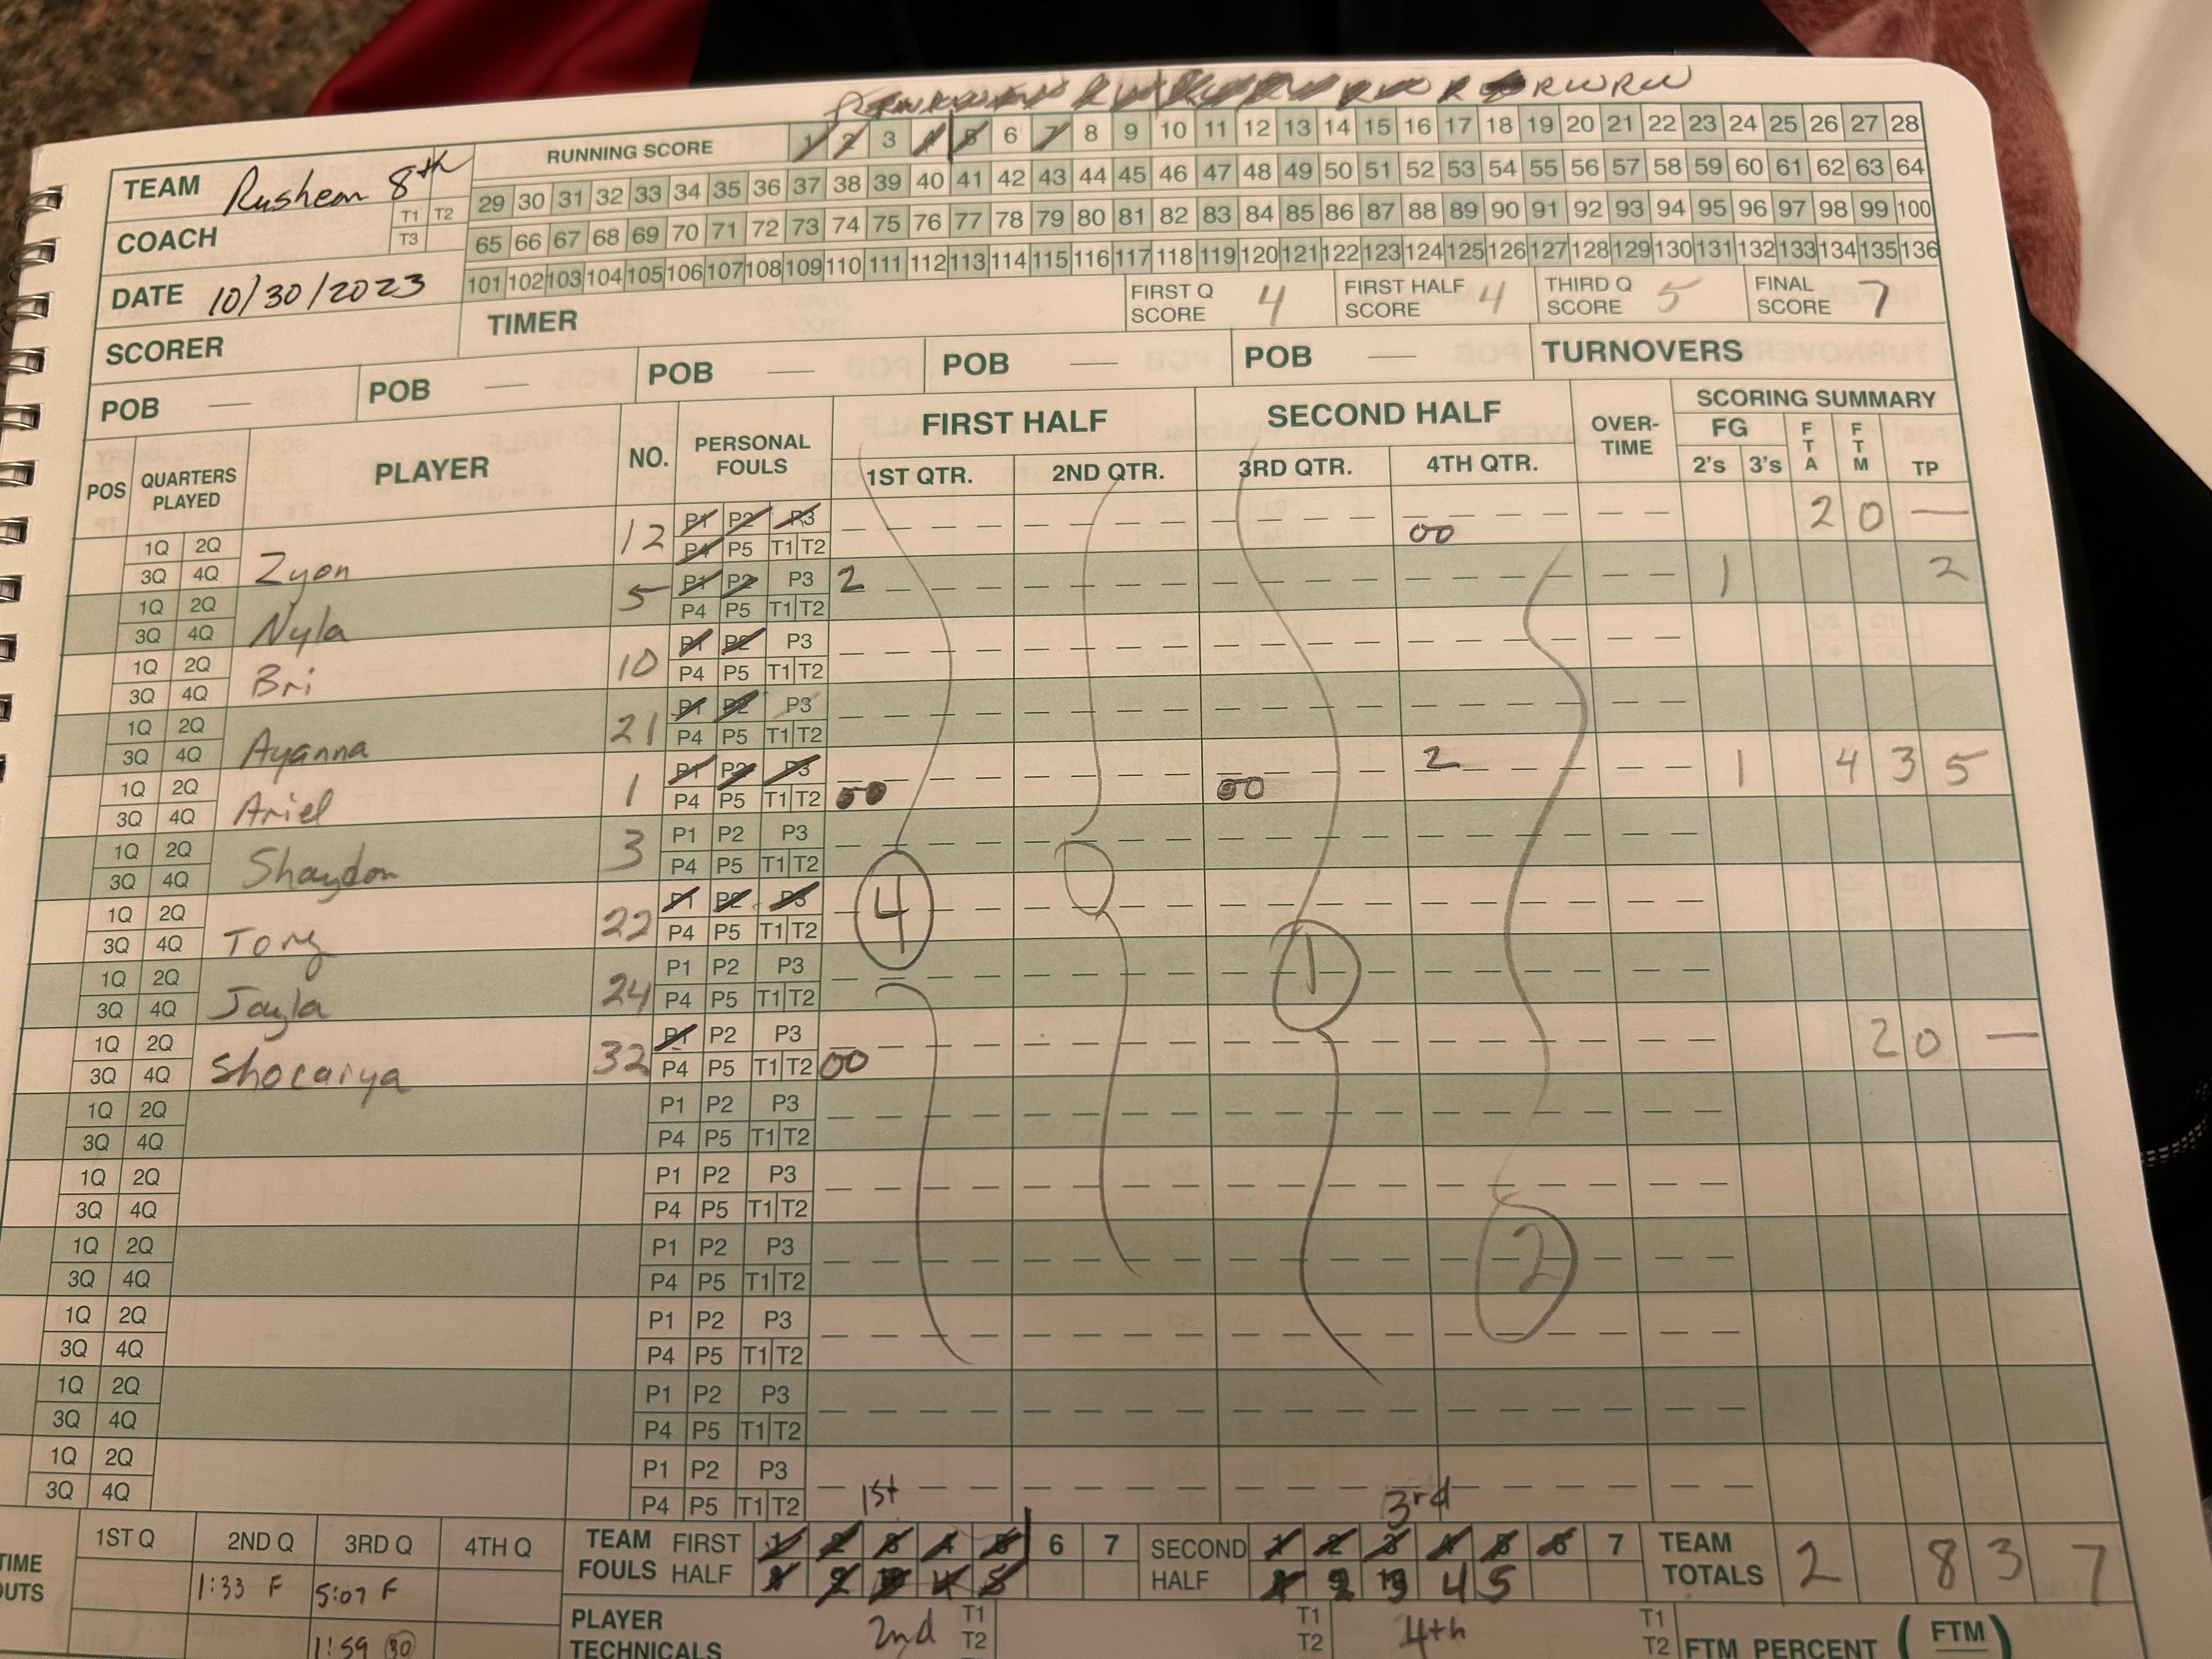 RUNNING SCORE 1 2 3 4 5 6 7 8 9 10 11 12 13 14 15 16 17 18 19 20 21 22 23 24 25 26 27 28
TEAM Rushem 8th
29 30 31 32 33 34 35 36 37 38 39 40 41 42 43 44 45 46 47 48 49 50 51 52 53 54 55 56 57 58 59 60 61 62 63 64
T1 T2
COACH
T3
65 66 67 68 69 70 71 72 73 74 75 76 77 78 79 80 81 82 83 84 85 86 87 88 89 90 91 92 93 94 95 96 97 98 99 100
101 102 103 104 105 106 107 108 109 110 111 112 113 114 115 116 117 118 119 120 121 122 123 124 125 126 127 128 129 130 131 132 133 134 135 136
DATE 10/30/2023
TIMER
FIRST Q SCORE 4
FIRST HALF SCORE 4
THIRD Q SCORE 5
FINAL SCORE 7
SCORER
POB — POB — POB — POB — POB — TURNOVERS
POS QUARTERS PLAYED PLAYER NO. PERSONAL FOULS FIRST HALF SECOND HALF OVER-TIME SCORING SUMMARY
1ST QTR. 2ND QTR. 3RD QTR. 4TH QTR. FG 2's 3's FTA FTM TP
1Q 2Q P1 P2 P3
3Q 4Q Zyon 12 P4 P5 T1 T2 00 2 0 —
1Q 2Q P1 P2 P3 2 1 2
3Q 4Q Nyla 5 P4 P5 T1 T2
1Q 2Q P1 P2 P3
3Q 4Q Bri 10 P4 P5 T1 T2
1Q 2Q P1 P2 P3
3Q 4Q Ayanna 21 P4 P5 T1 T2
1Q 2Q P1 P2 P3 2 1 4 3 5
3Q 4Q Ariel 1 P4 P5 T1 T2 00 00
1Q 2Q P1 P2 P3
3Q 4Q Shaydon 3 P4 P5 T1 T2 0
1Q 2Q P1 P2 P3 4
3Q 4Q Tory 22 P4 P5 T1 T2
1Q 2Q P1 P2 P3 1
3Q 4Q Jayla 24 P4 P5 T1 T2
1Q 2Q P1 P2 P3 2 0 —
3Q 4Q Shocariya 32 P4 P5 T1 T2 00
1Q 2Q P1 P2 P3
3Q 4Q P4 P5 T1 T2
1Q 2Q P1 P2 P3
3Q 4Q P4 P5 T1 T2
1Q 2Q P1 P2 P3 2
3Q 4Q P4 P5 T1 T2
1Q 2Q P1 P2 P3
3Q 4Q P4 P5 T1 T2
1Q 2Q P1 P2 P3
3Q 4Q P4 P5 T1 T2
1Q 2Q P1 P2 P3
3Q 4Q P4 P5 T1 T2
1st 3rd
1ST Q 2ND Q 3RD Q 4TH Q
TEAM FOULS FIRST HALF 1 2 3 4 5 6 7
SECOND HALF 1 2 3 4 5 6 7
TEAM TOTALS 2 8 3 7
1:33 F 5:07 F
1:59 30
PLAYER TECHNICALS 2nd T1 T2 T1 T2 4th T1 T2
FTM PERCENT (FTM)